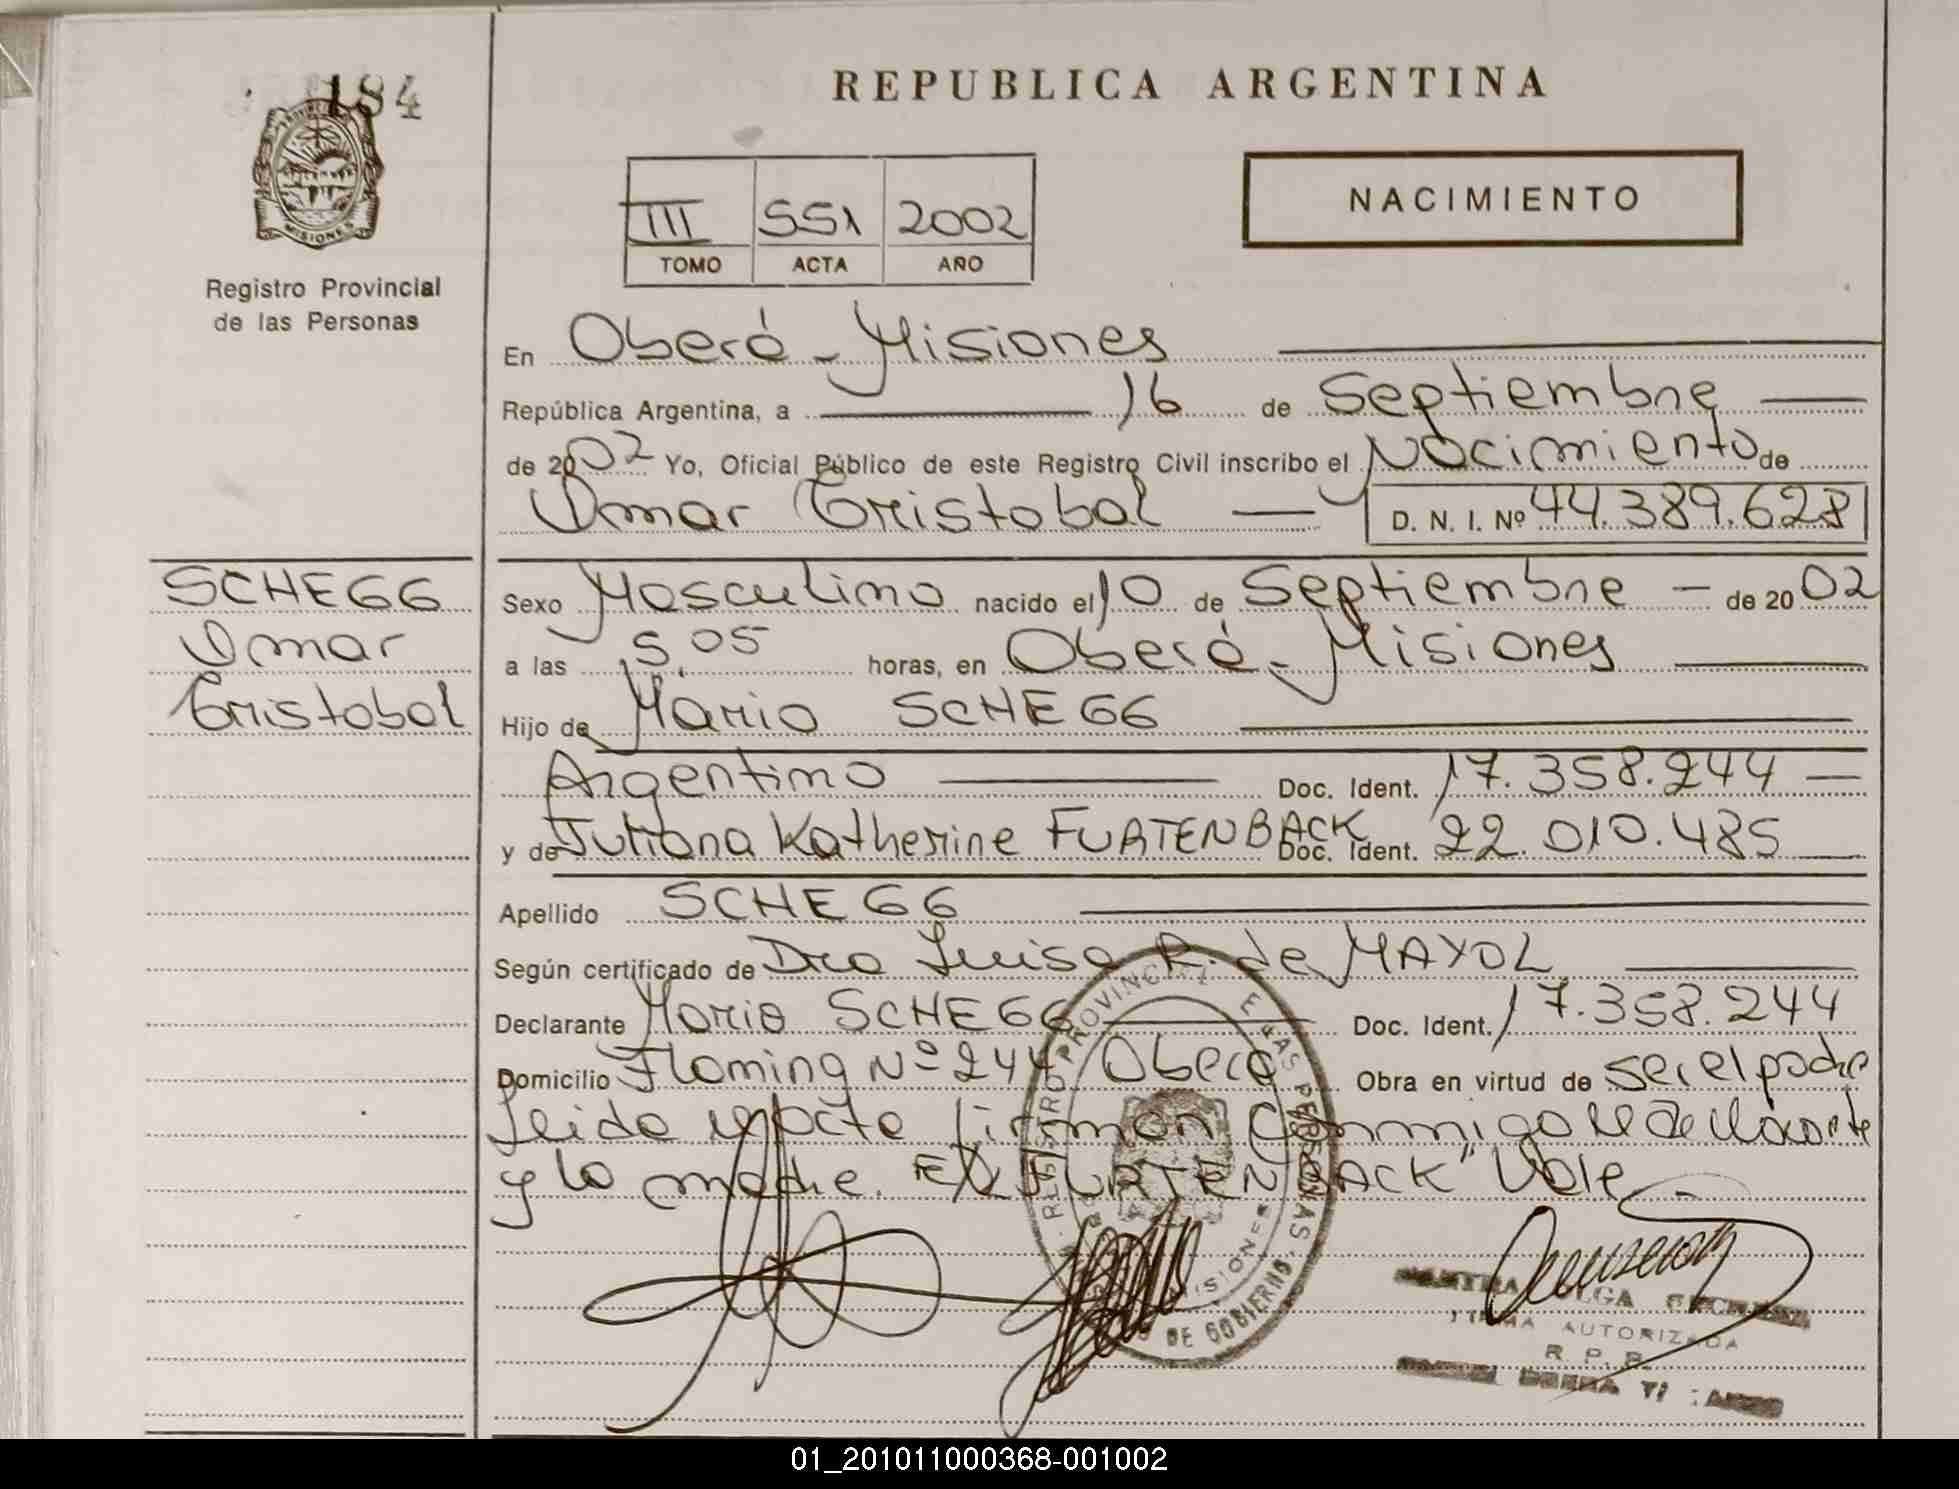 184
REPUBLICA ARGENTINA
NACIMIENTO
III 551 2002
TOMO ACTA AÑO
MISIONES
Registro Provincial
de las Personas
En Oberá - Misiones
República Argentina, a 16 de Septiembre
de 2002 Yo, Oficial Público de este Registro Civil inscribo el Nacimiento de
Omar Cristobal D. N. I. Nº 44.389.628
SCHEGG
Omar
Cristobal
Sexo Masculino nacido el 10 de Septiembre - de 2002
a las 5.05 horas, en Oberá - Misiones
Hijo de Mario SCHEGG
Argentino Doc. Ident. 17.358.244
y de Juliana Katherine FURTENBACK Doc. Ident. 22.010.485
Apellido SCHEGG
Según certificado de Dra Luisa R. de MAYOL
Declarante Mario SCHEGG Doc. Ident. 17.358.244
Domicilio Fleming Nº 244 Oberá Obra en virtud de ser el padre
Leida el acta firman conmigo el declarante
y la madre. FURTENBACK" Vale
REGISTRO PROVINCIAL DE LAS PERSONAS
MISIONES
DE GOBIERNO
OLGA
FIRMA AUTORIZADA
R. P. P.
01_201011000368-001002